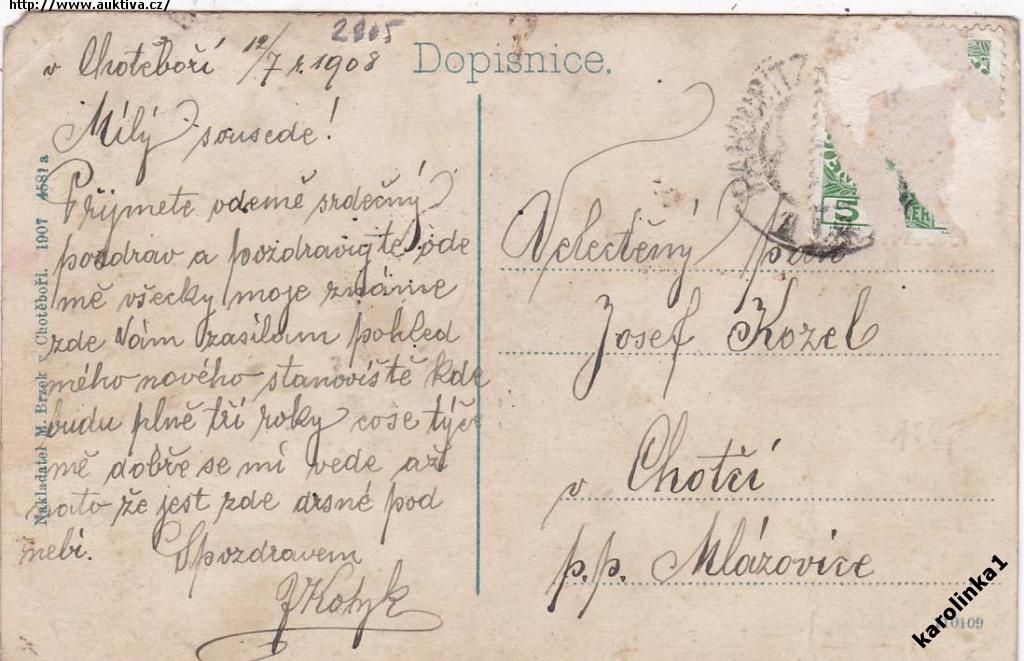 http://www.auktiva.cz/
2905
v Chotěboři 12/7 r. 1908
Dopisnice.
Milý sousede!
Přijmete odemě srdečný
pozdrav a pozdravujte ode
mě všecky moje známe
zde Vám zasílam pohled
mého nového stanoviště kde
budu plně tři roky cose týče
mě dobře se mi vede až
nato že jest zde drsné pod
nebí.
Spozdravem
JKotyk
Velectěný pan
Josef Kozel
v Chotči
p.p. Mlázovice
Nakladatel M. Brzek v Chotěboři. 1907 4581a
5
10109
karolinka1